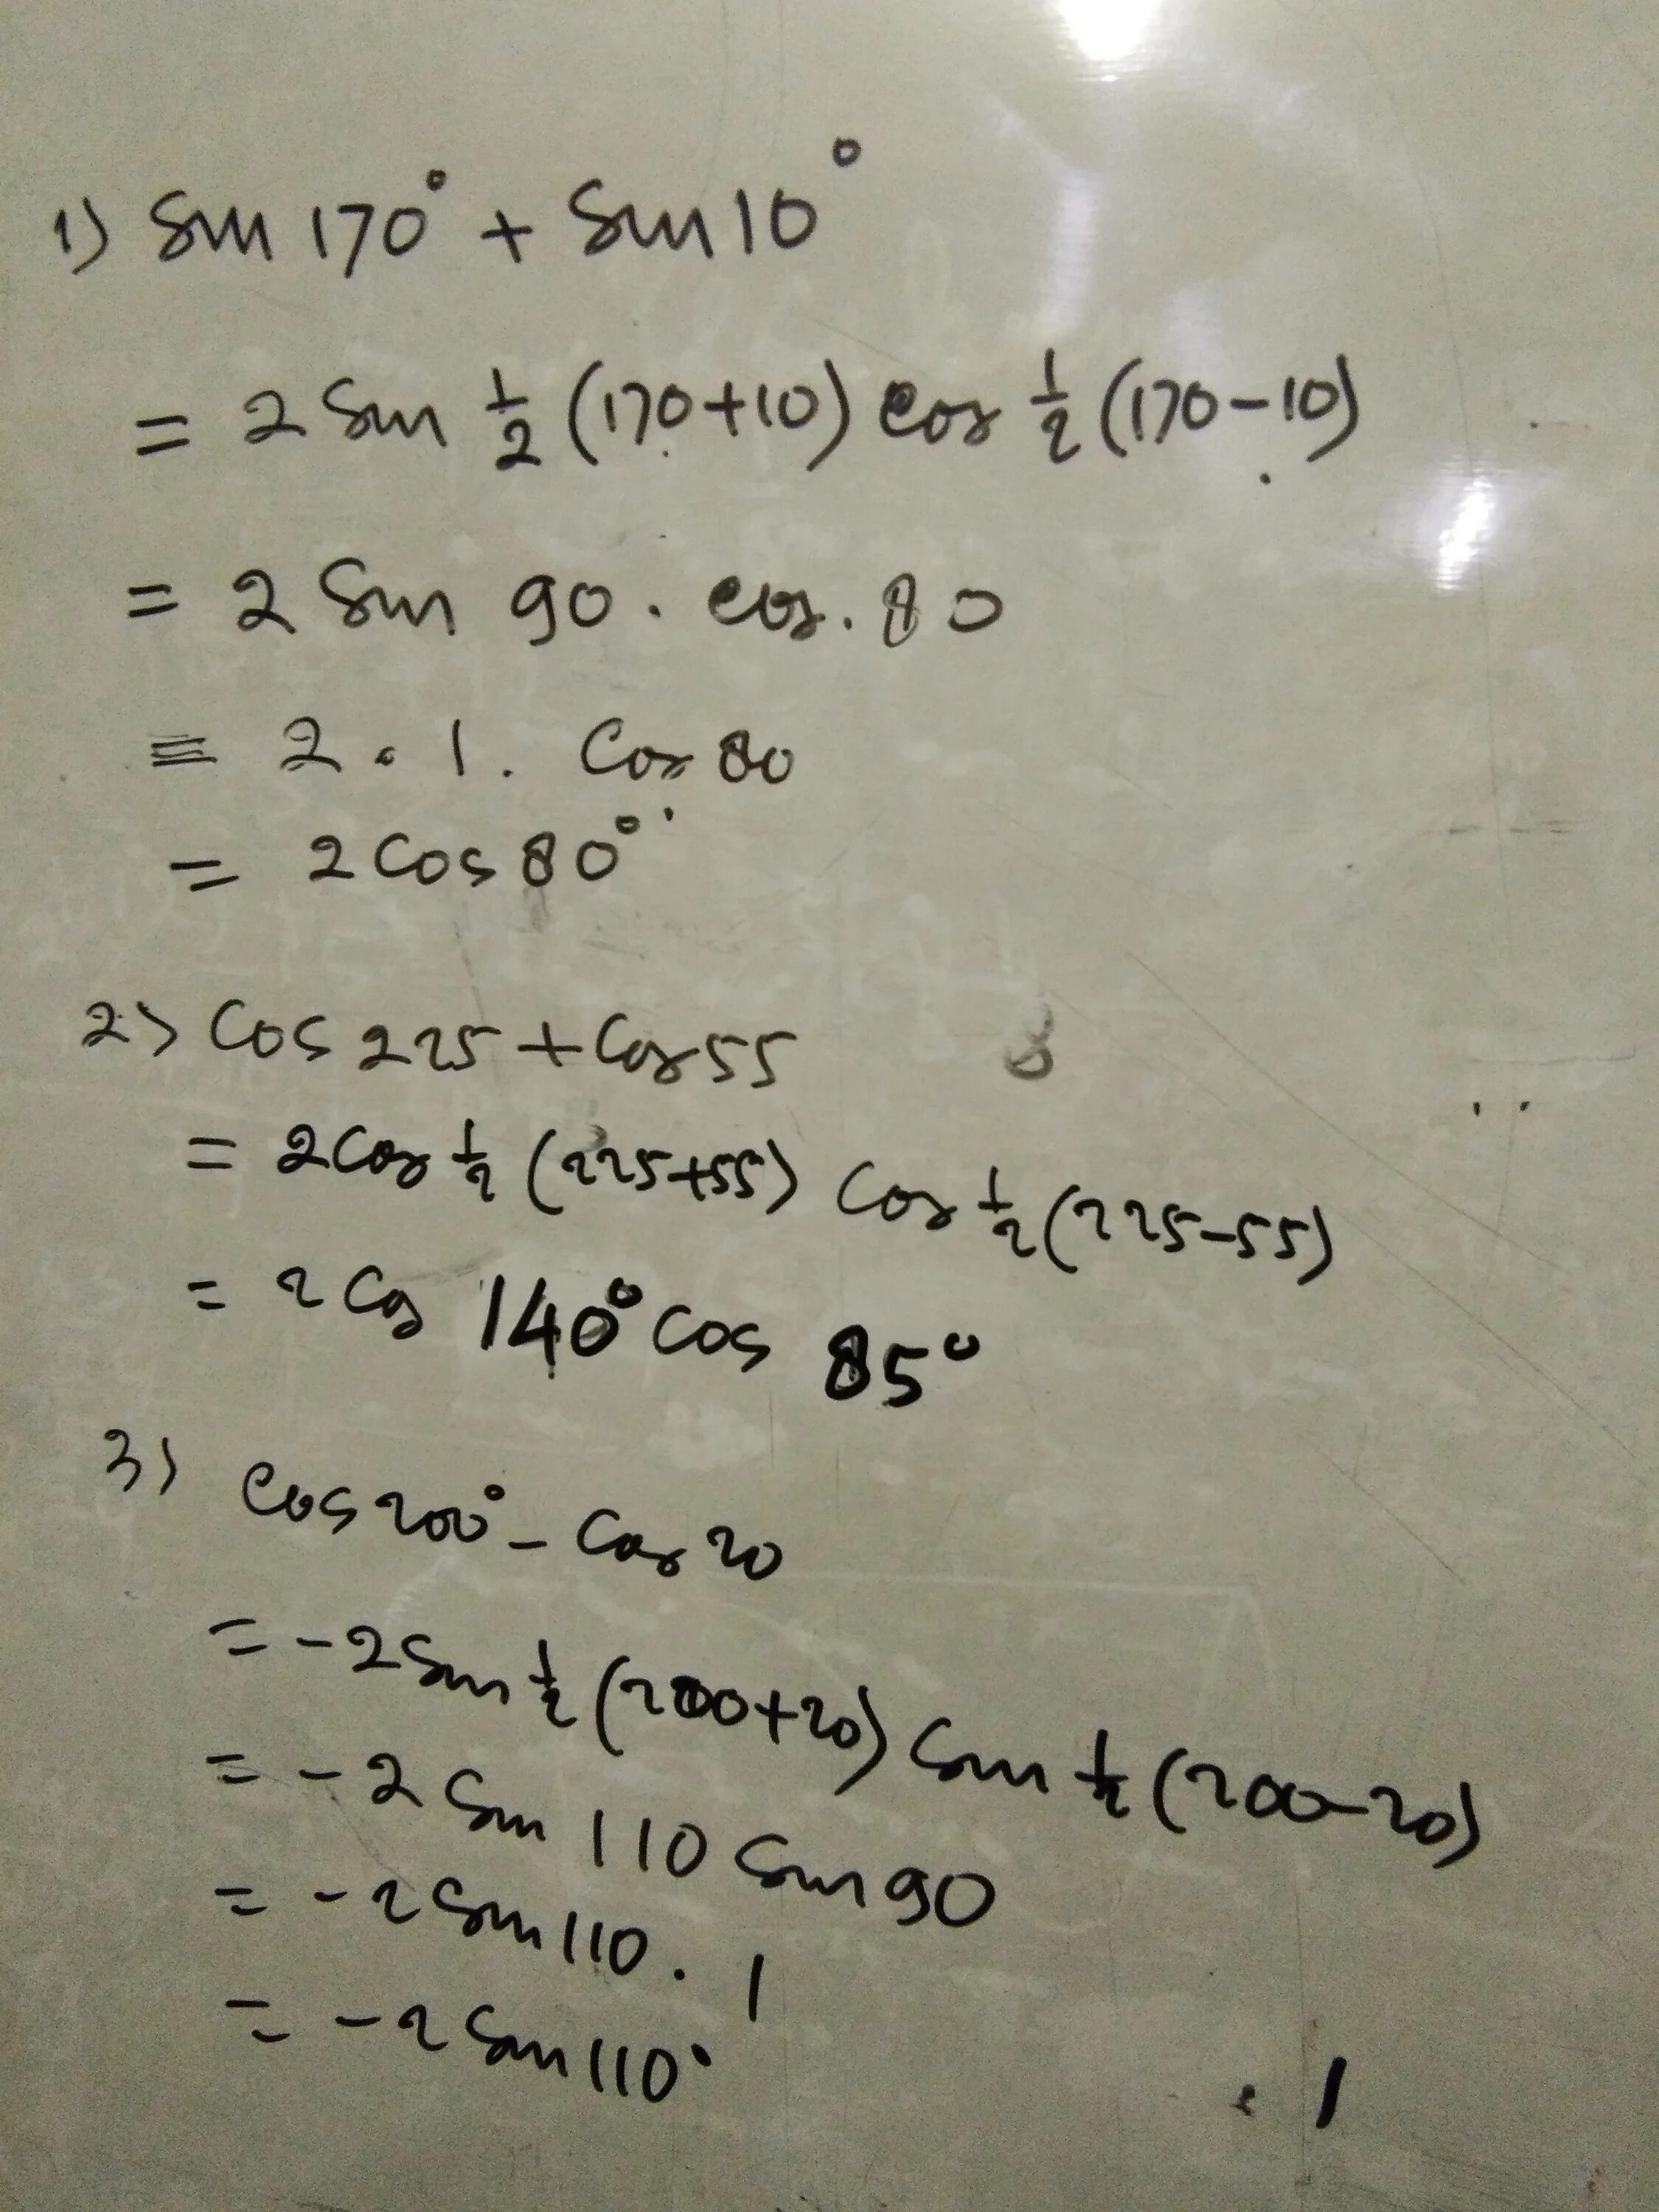 1) Sin 170° + Sin 10°
= 2 Sin 1/2 (170+10) cos 1/2 (170-10)
= 2 Sin 90 . cos . 80
= 2 . 1 . Cos 80
= 2 Cos 80°
2) Cos 225 + Cos 55
= 2 Cos 1/2 (225+55) Cos 1/2 (225-55)
= 2 Cos 140° Cos 85°
3) Cos 200° - Cos 20
= -2 Sin 1/2 (200+20) Sin 1/2 (200-20)
= -2 Sin 110 Sin 90
= -2 Sin 110 . 1
= -2 Sin 110°